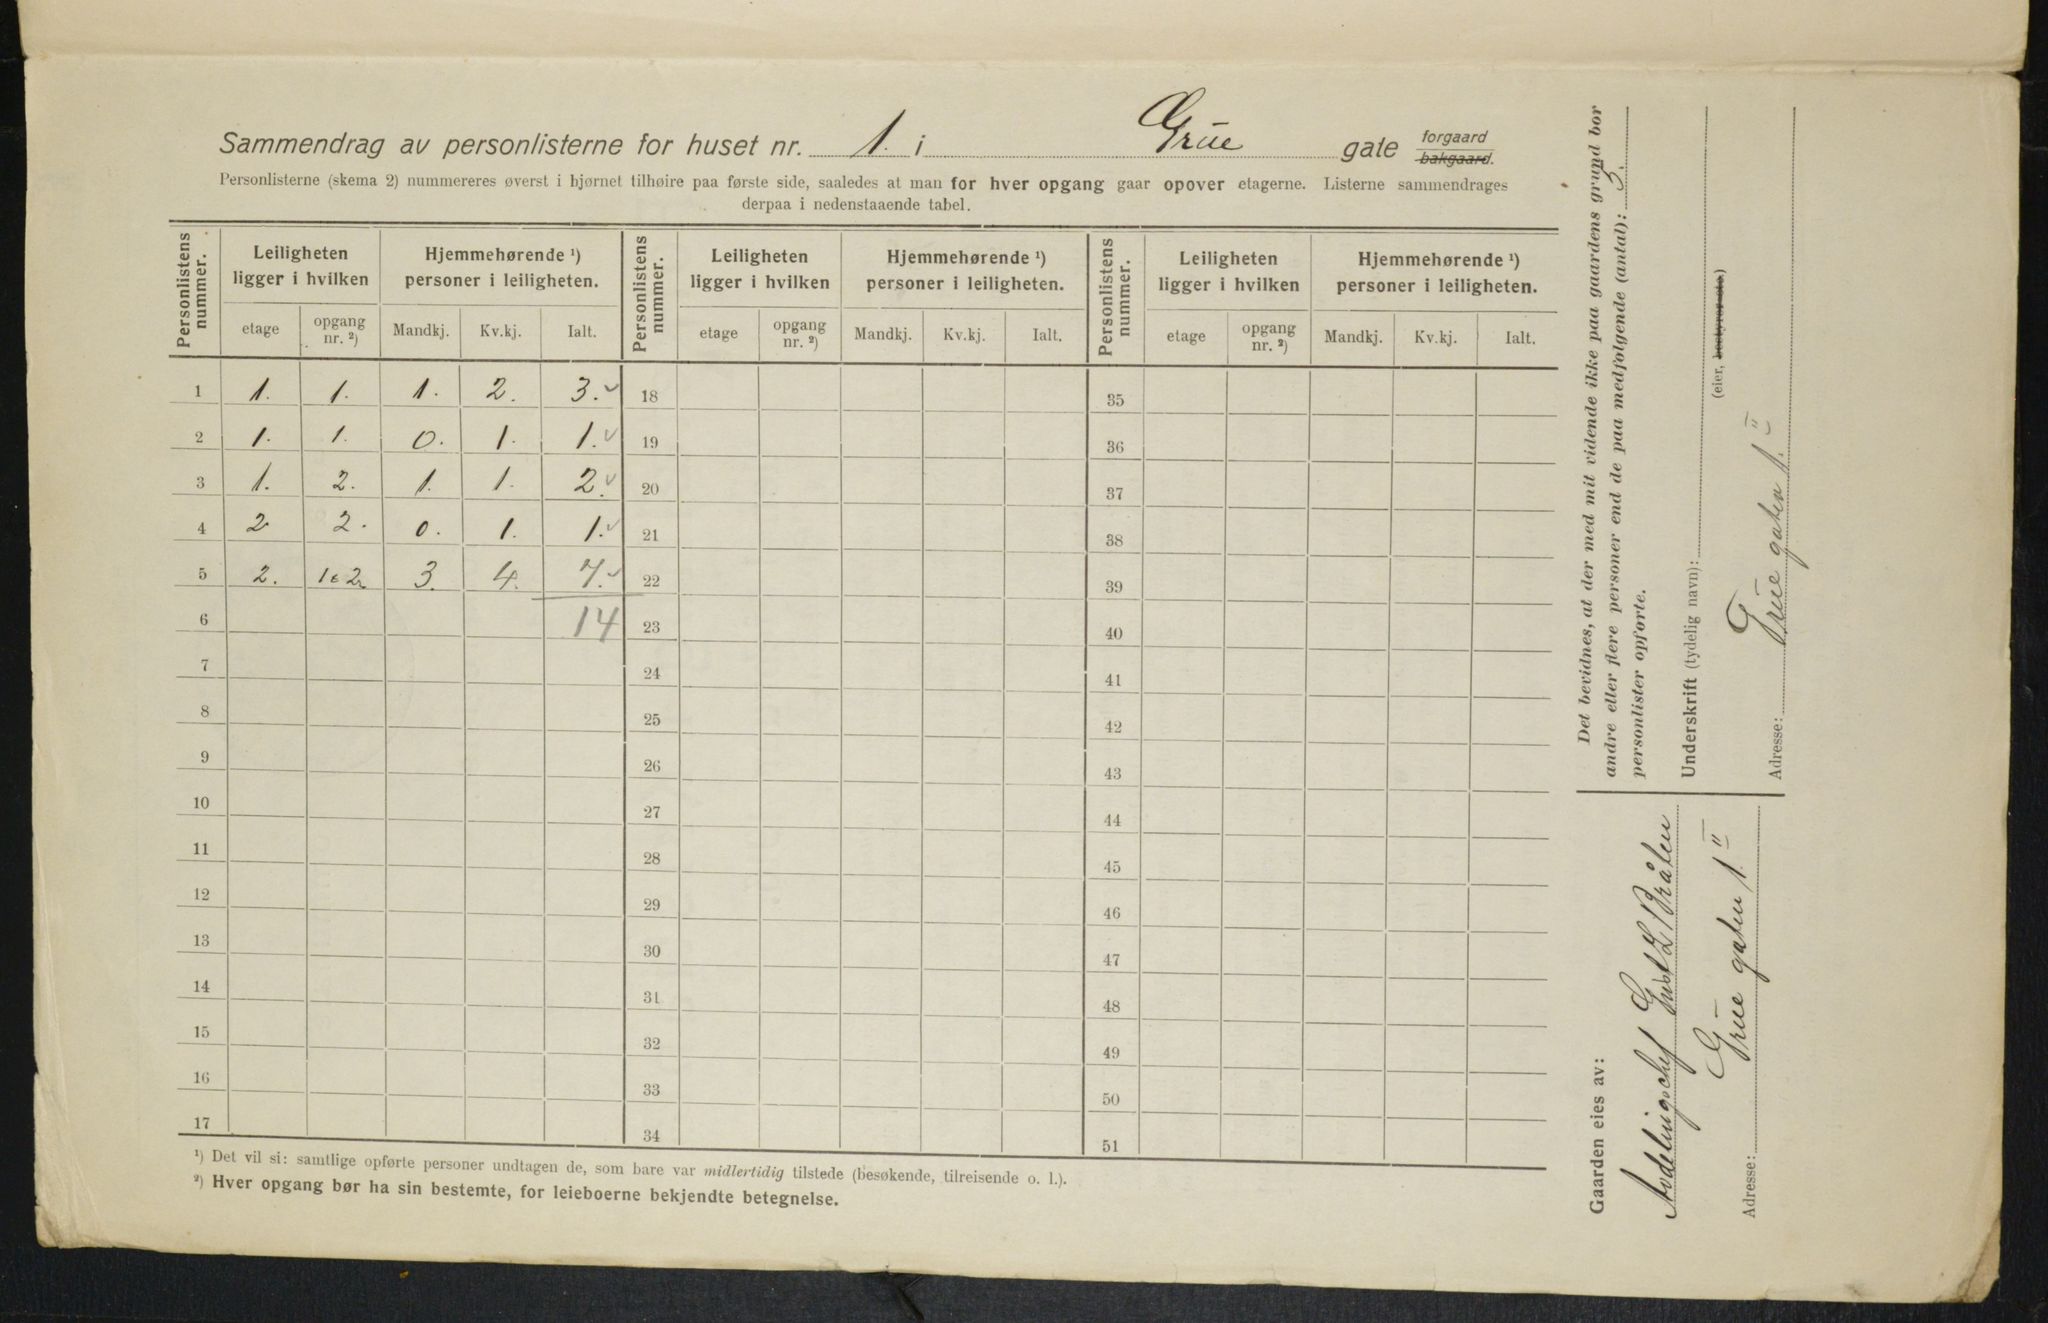 Sammendrag av personlisterne for huset nr. 1. i Grüe gate forgaard bakgaard.
Personlisterne (skema 2) nummereres øverst i hjørnet tilhøire paa første side, saaledes at man for hver opgang gaar opover etagerne. Listerne sammendrages
derpaa i nedenstaaende tabel.
Personlistens nummer. Leiligheten ligger i hvilken Hjemmehørende ¹) personer i leiligheten. Personlistens nummer. Leiligheten ligger i hvilken Hjemmehørende ¹) personer i leiligheten. Personlistens nummer. Leiligheten ligger i hvilken Hjemmehørende ¹) personer i leiligheten.
etage opgang nr. ²) Mandkj. Kv.kj. Ialt. etage opgang nr. ²) Mandkj. Kv.kj. Ialt. etage opgang nr. ²) Mandkj. Kv.kj. Ialt.
1 1. 1. 1. 2. 3. 18 35
2 1. 1. 0. 1. 1. 19 36
3 1. 2. 1. 1. 2. 20 37
4 2 2. 0. 1. 1. 21 38
5 2. 1 & 2 3. 4. 7. 22 39
6 14 23 40
7 24 41
8 25 42
9 26 43
10 27 44
11 28 45
12 29 46
13 30 47
14 31 48
15 32 49
16 33 50
17 34 51
¹) Det vil si: samtlige opførte personer undtagen de, som bare var midlertidig tilstede (besøkende, tilreisende o. l.).
²) Hver opgang bør ha sin bestemte, for leieboerne bekjendte betegnelse.
Det bevidnes, at der med mit vidende ikke paa gaardens grund bor
andre eller flere personer end de paa medfølgende (antal): 5.
personlister opførte.
Underskrift (tydelig navn):
(eier, bestyrer etc.)
Adresse: Grüe gaten 1. II
Gaarden eies av:
Avdelingschef Bråten
Adresse: Grüe gaten 1. II